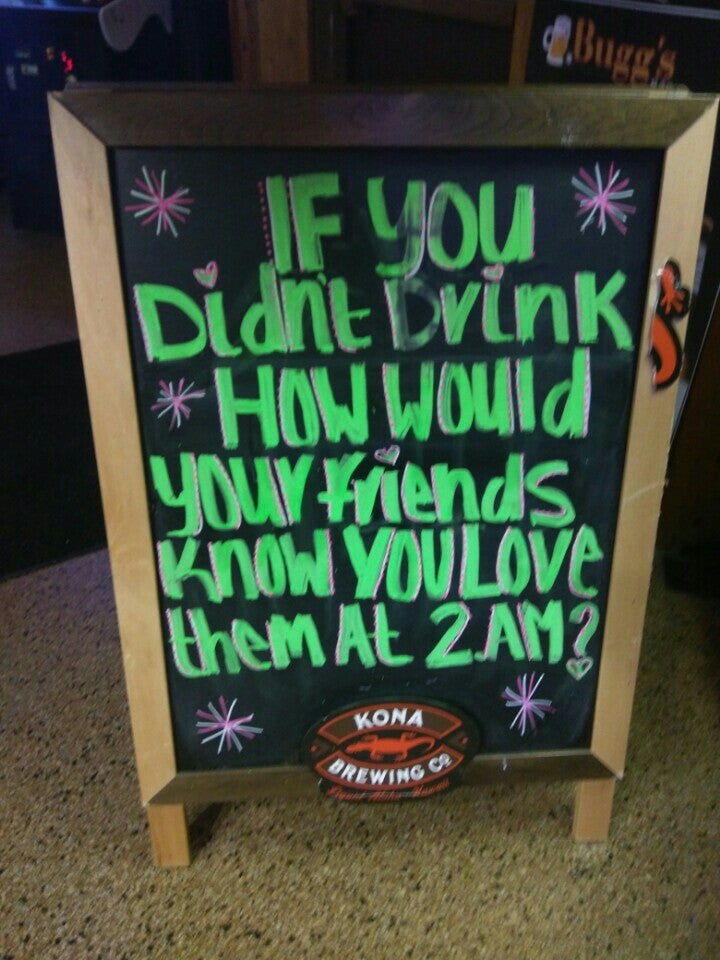 Bugg's
IF YOU
Didn't Drink
How would
your friends
know you Love
them At 2.AM?
KONA
BREWING CO
Liquid Aloha Hawaii